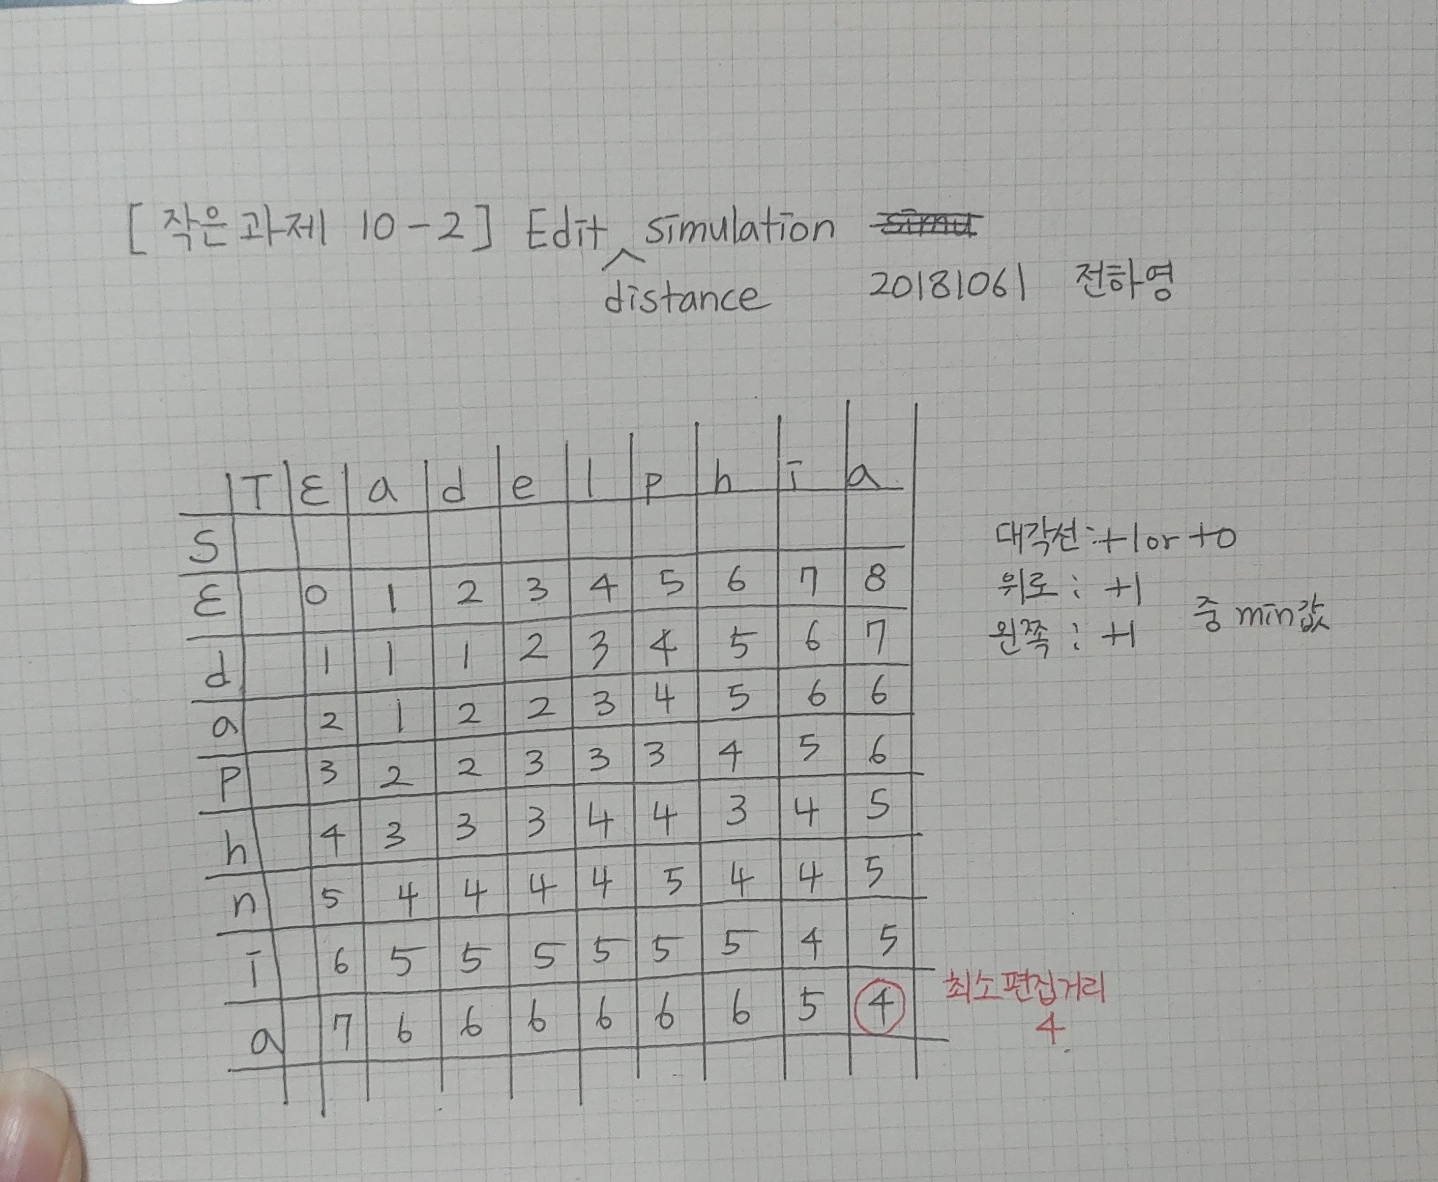 [ 작은과제 10-2 ] Edit simulation
distance
20181061 전하영
T ε a d e l p h i a
S
ε 0 1 2 3 4 5 6 7 8
d 1 1 1 2 3 4 5 6 7
a 2 1 2 2 3 4 5 6 6
p 3 2 2 3 3 3 4 5 6
h 4 3 3 3 4 4 3 4 5
n 5 4 4 4 4 5 4 4 5
i 6 5 5 5 5 5 5 4 5
a 7 6 6 6 6 6 6 5 4
대각선 : +1 or +0
위로 : +1
왼쪽 : +1
중 min값
최소편집거리
4